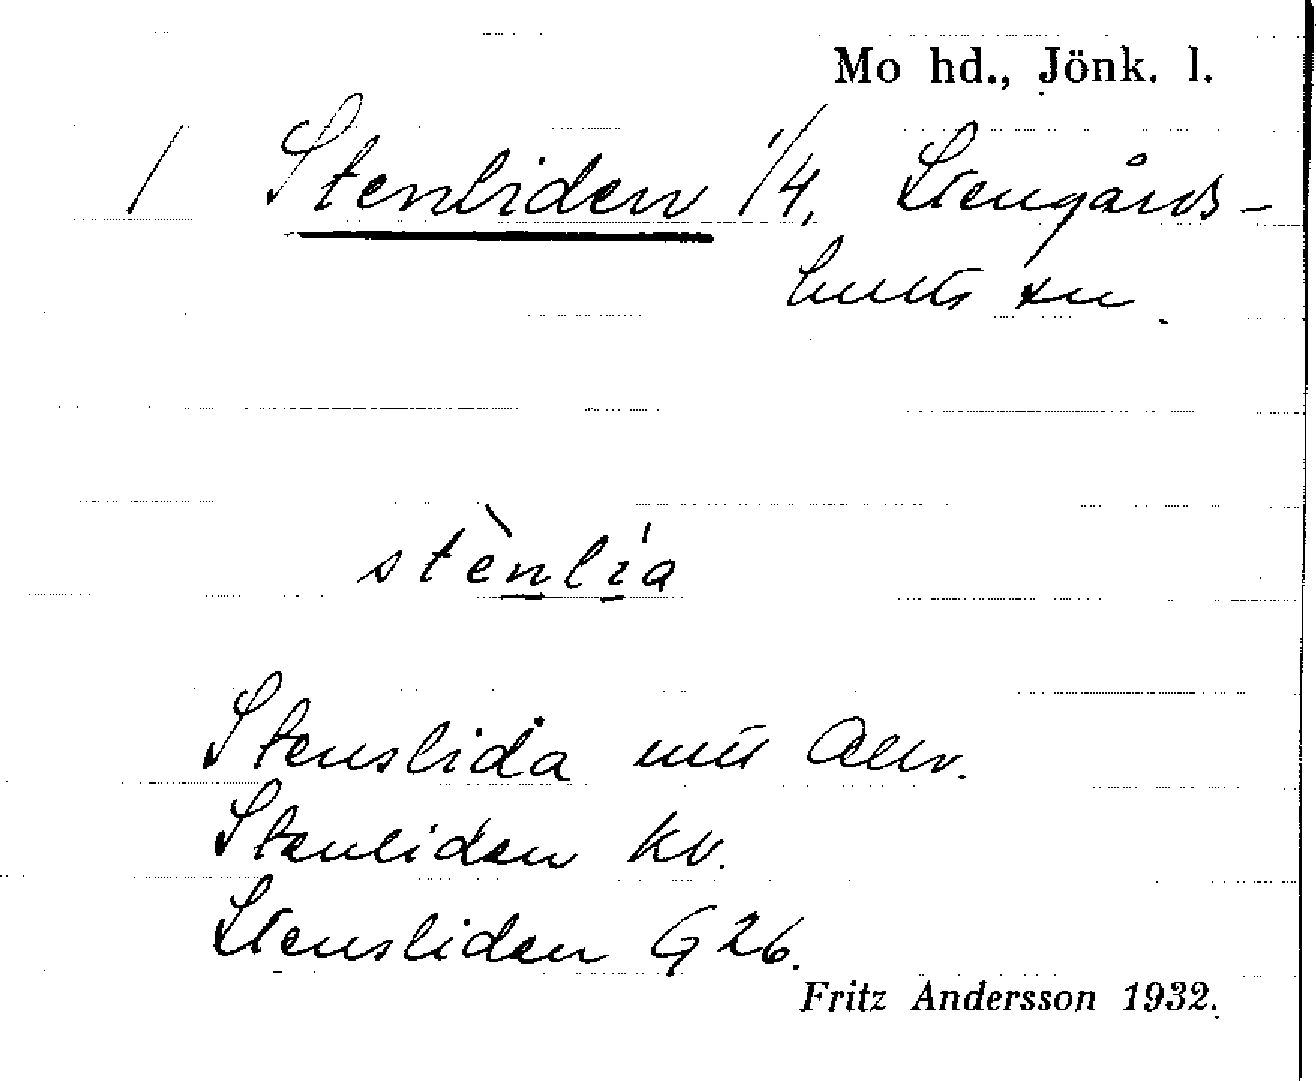 Mo hd., Jönk. l.
1 Stenliden 1/4, Stengårds-
hults sn.
stènlía
Stenslida
Stenliden kv.
Stensliden G 26.
Fritz Andersson 1932.